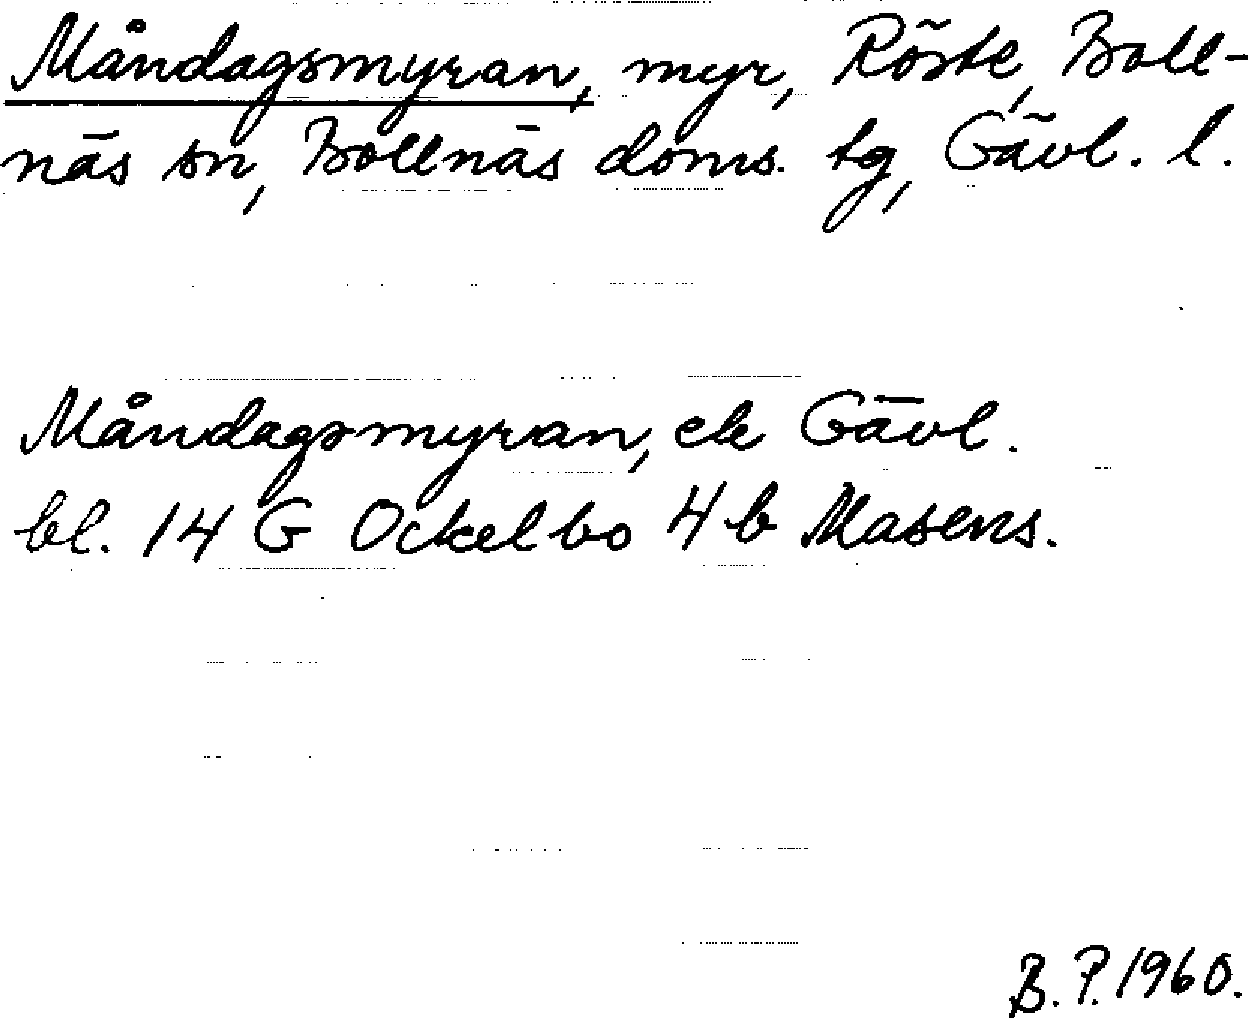 Måndagsmyran, myr, Röste, Boll-
näs sn, Bollnäs doms. tg, Gävl. l.
Måndagsmyran, ek Gävl.
bl. 14 G Ockelbo 4 b Masens.
B. P. 1960.